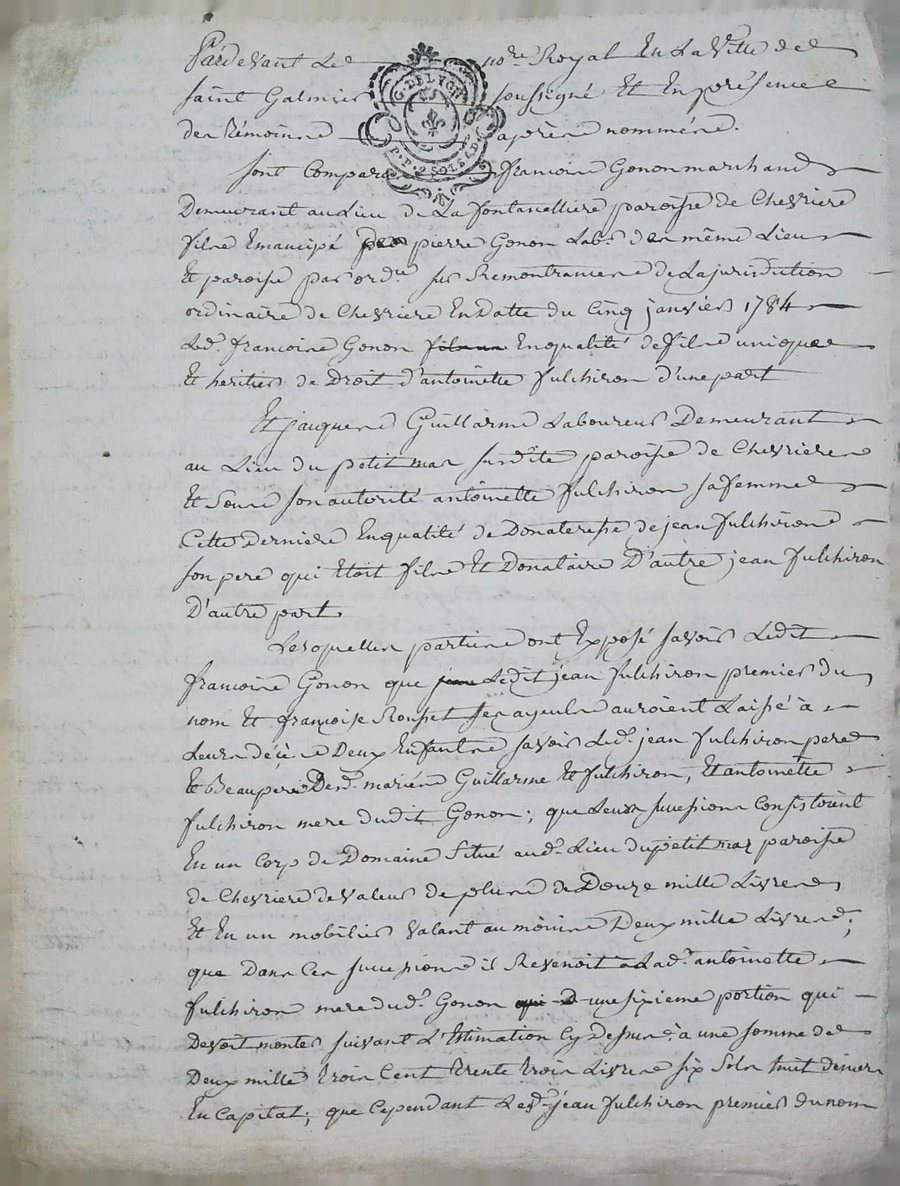 Pardevant Le no.re Royal En La Ville de
saint Galmier soussigné Et En présence
des témoins après nommés.
sont Comparu françois Gonon marchand
Demeurant au Lieu de La fontanelliere paroisse de Chevriere
fils Emancipé de pierre Gonon Lab.r du même Lieu
Et paroisse par ord.ce sur Remontrances de La jurisdiction
ordinaire de Chevriere En Datte du Cinq janvier 1784
Led. françois Gonon En qualité de fils unique
Et heritier de Droit d'antoinette fulchiron d'une part
Et jacques Guillarme Laboureur Demeurant
au Lieu du petit mas susdite paroisse de Chevrieres
Et Sous son autorité antoinette fulchiron sa femme
Cette Derniere En qualité de Donateresse de jean fulchiron
son pere qui Etoit fils Et Donataire D'autre jean fulchiron
D'autre part
Lesquelles parties ont Exposé savoir Ledit
françois Gonon que Ledit jean fulchiron premier du
nom Et françoise Rousset ses ayeuls auroient Laissé à
Leurs décès Deux Enfants savoir Led. jean fulchiron pere
Et Beaupere Desd. mariés Guillarme Et fulchiron, Et antoinette
fulchiron mere dudit Gonon; que Leur succession Consistoient
En un Corp de Domaine Situé aud. Lieu du petit mas paroisse
de Chevriere de valeur de plus de Douze mille Livres
Et En un mobilier valant au moins Deux mille Livres;
que Dans Ces successions il Revenoit à Lad. antoinette
fulchiron mere dud. Gonon une sixieme portion qui
Devoit monter suivant L'Estimation Cy Dessus, à une somme de
Deux mille trois Cent trente trois Livres six Sols huit deniers
En Capital; que Cependant Led. jean fulchiron premier du nom
G. DE LYON
P. P. 2 SOLS 4 D.